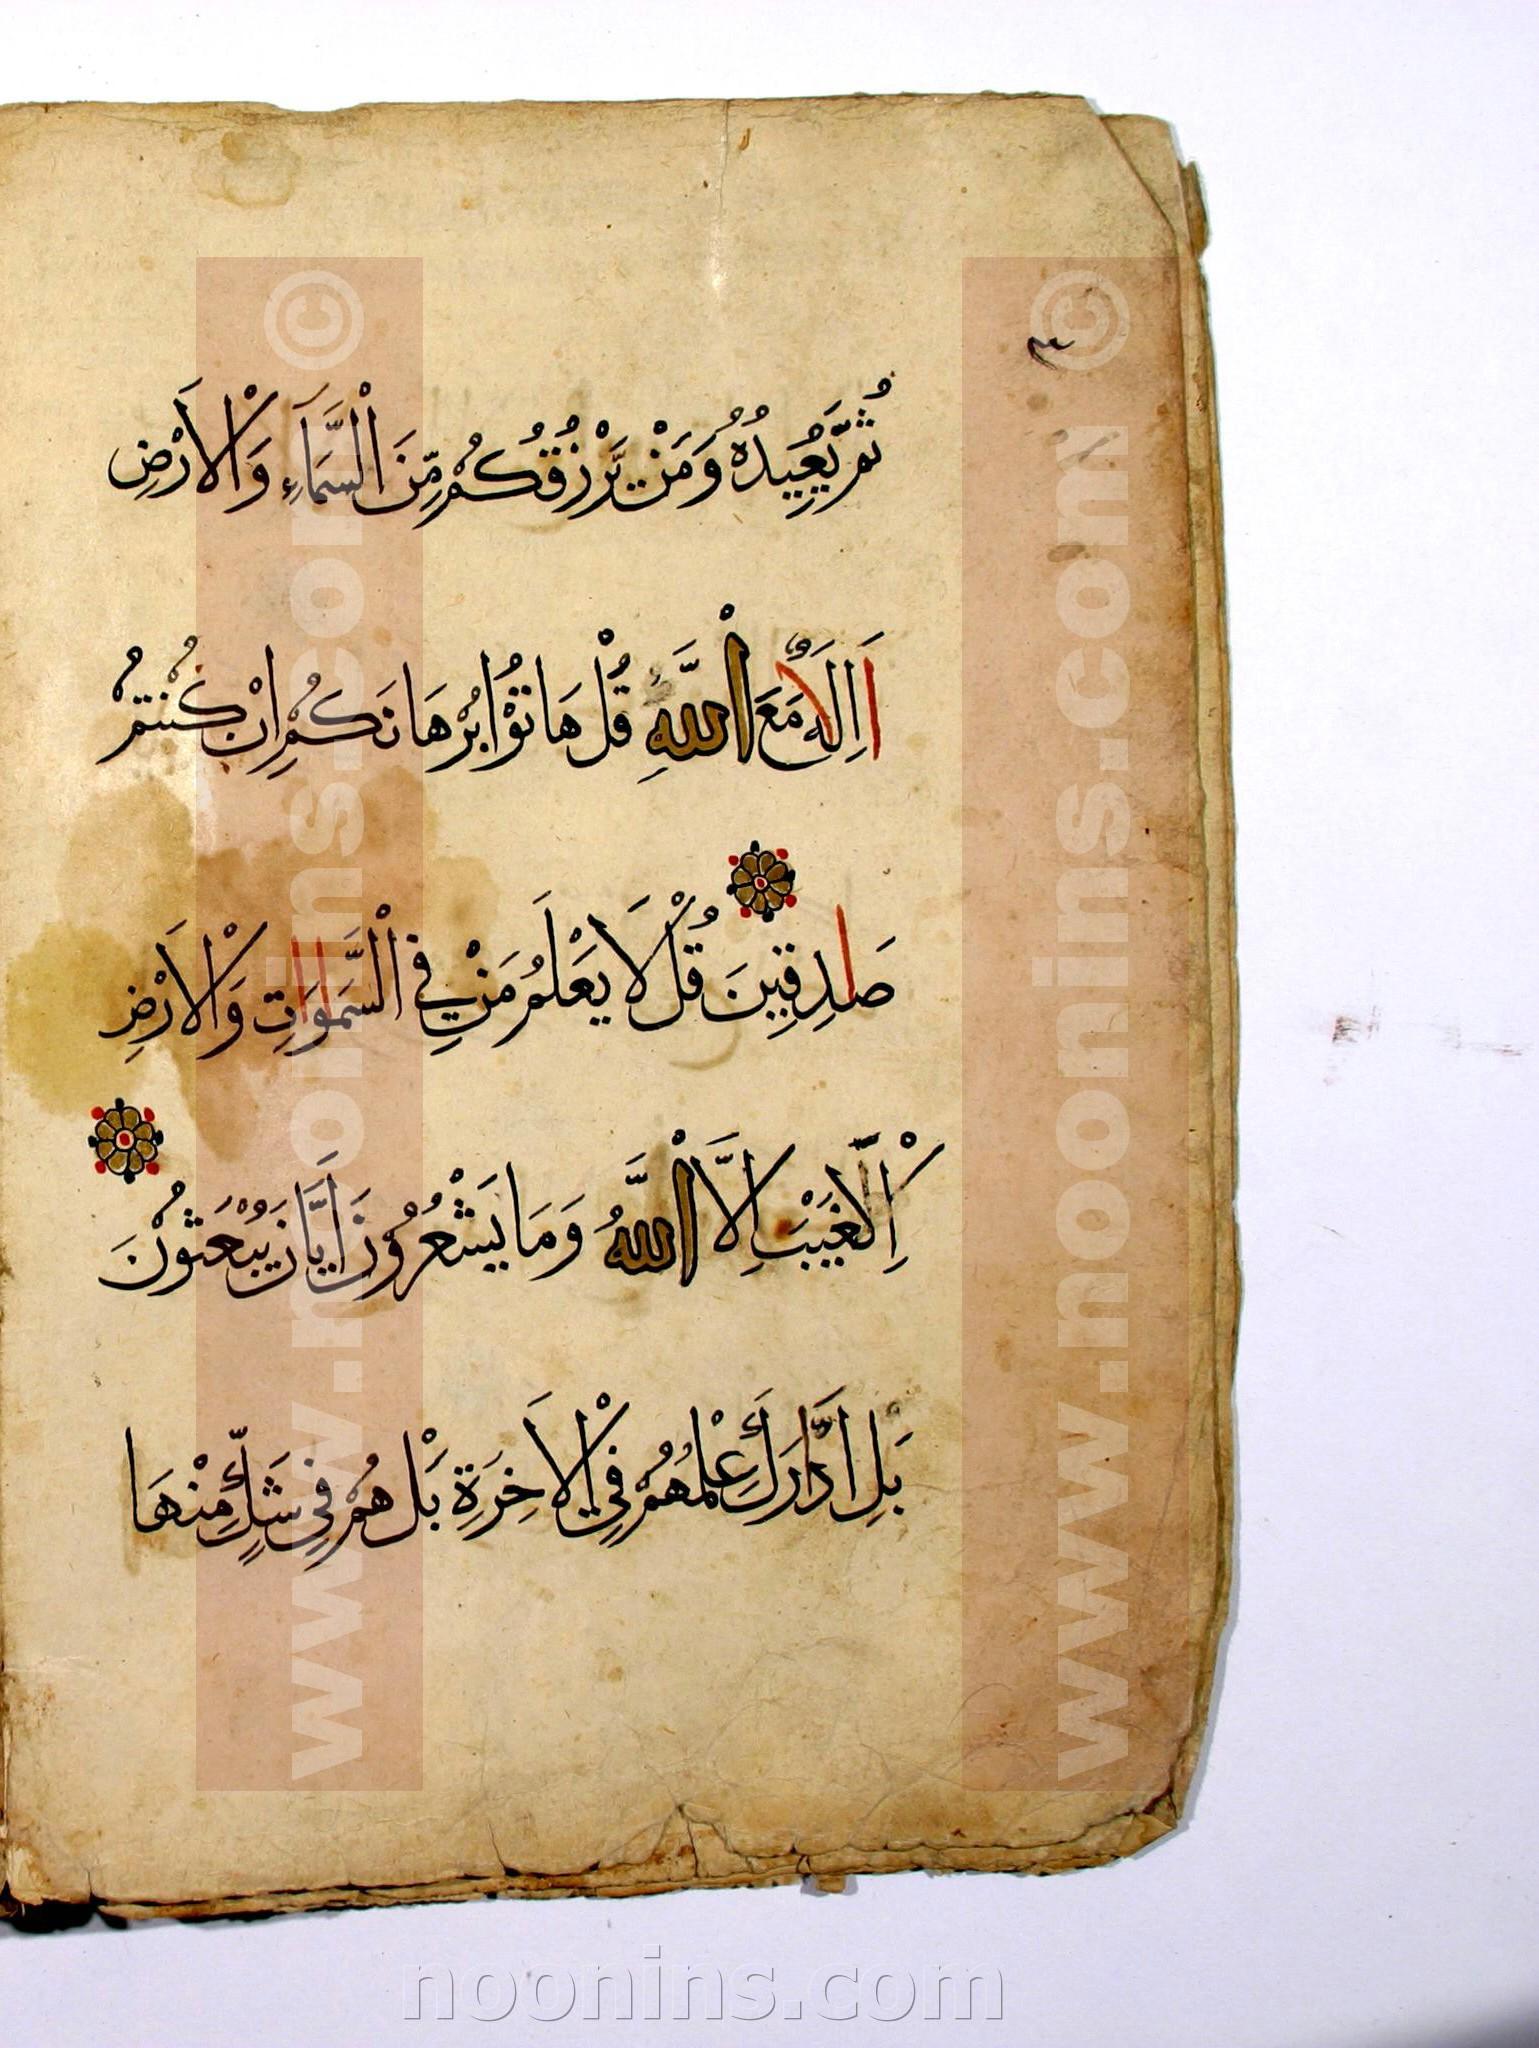 ٣
ثُمَّ يُعِيدُهُ وَمَنْ يَرْزُقُكُمْ مِّنَ الْسَّمَآءِ وَالْاَرْضِ
اَاِلَهٌ مَعَ اللَّهِ قُلْ هَاتُوْا بُرْهَانَكُمْ اِنْ كُنْتُمْ
صَادِقِينَ قُلْ لَا يَعْلَمُ مَنْ فِي الْسَّمَوَاتِ وَالْاَرْضِ
الْغَيْبَ اِلَّا اللَّهُ وَمَا يَشْعُرُوْنَ اَيَّانَ يُبْعَثُوْنَ
بَلِ ادَّارَكَ عِلْمُهُمْ فِي الْاَخِرَةِ بَلْ هُمْ فِي شَكٍّ مِنْهَا
www.noonins.com ©
www.noonins.com ©
noonins.com